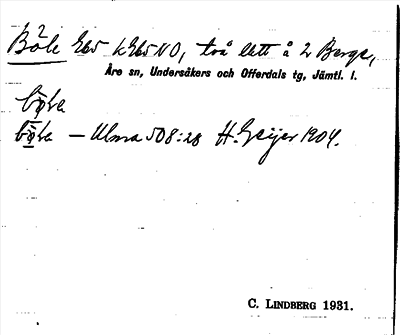 Böle 265 k265 NO, två lltt å 2 Berge,
Åre sn, Undersåkers och Offerdals tg, Jämtl. l.
— Ulma 508:28 H. Geijer 1904.
C. LINDBERG 1931.